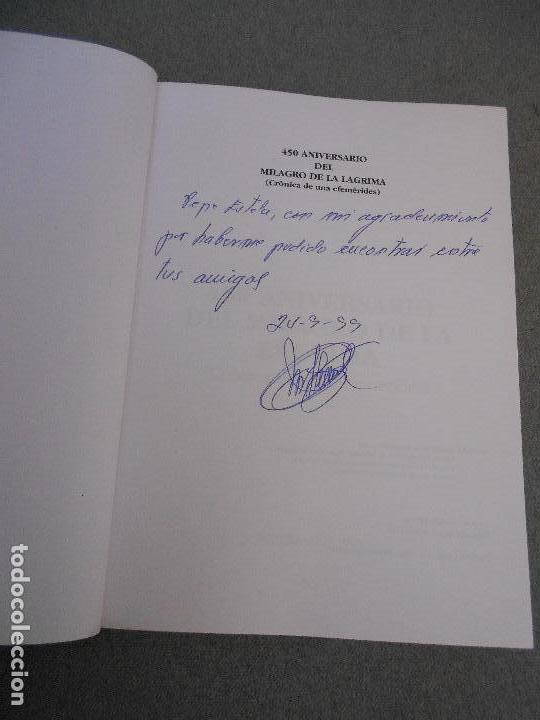 450 ANIVERSARIO
DEL
MILAGRO DE LA LAGRIMA
(Crónica de una efemérides)
Pepe Estela, con mi agradecimiento
por haberme podido encontrar entre
tus amigos
20-9-99
todocoleccion